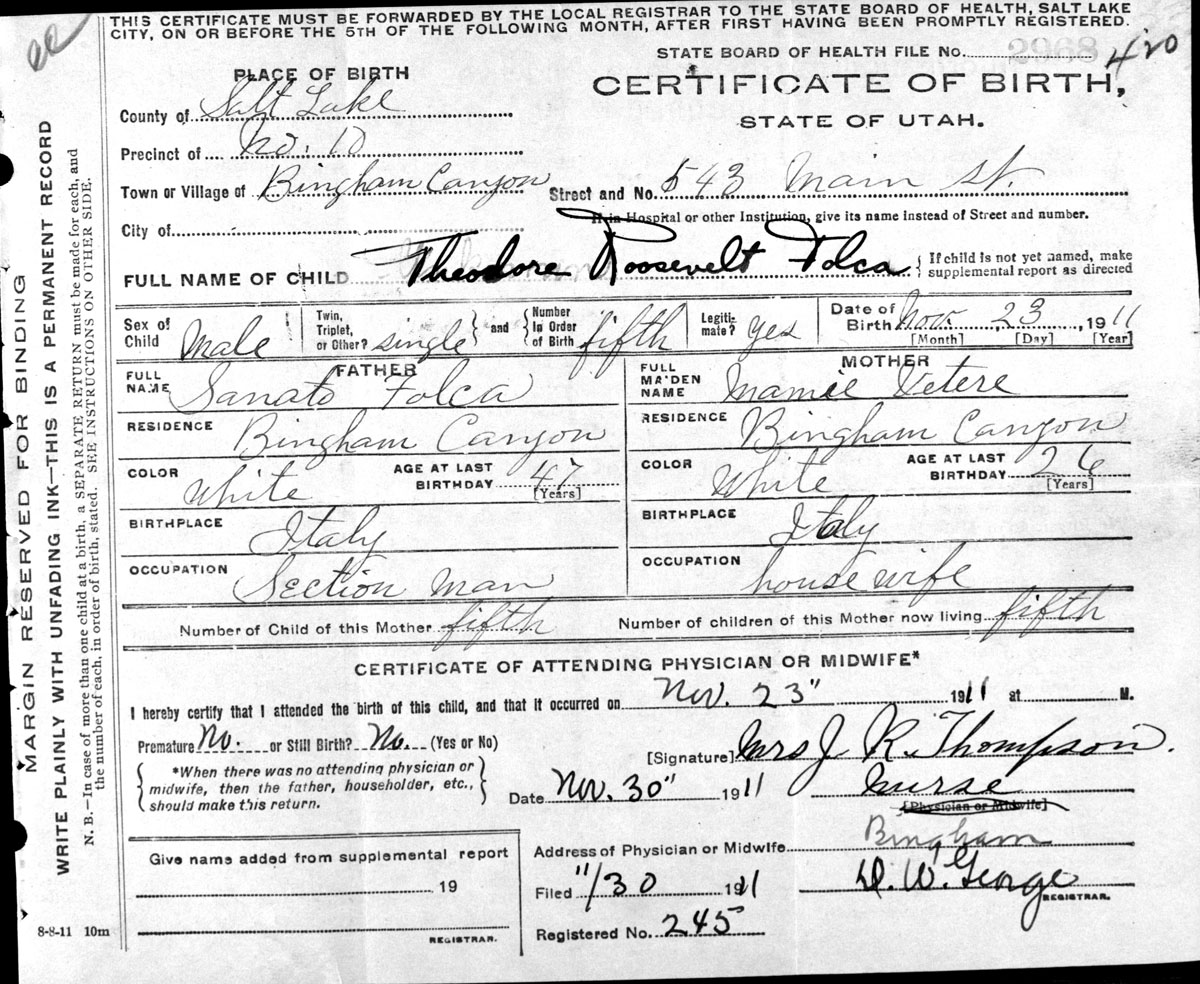 ee
THIS CERTIFICATE MUST BE FORWARDED BY THE LOCAL REGISTRAR TO THE STATE BOARD OF HEALTH, SALT LAKE
CITY, ON OR BEFORE THE 5TH OF THE FOLLOWING MONTH, AFTER FIRST HAVING BEEN PROMPTLY REGISTERED.
STATE BOARD OF HEALTH FILE No. 2968 420
PLACE OF BIRTH
CERTIFICATE OF BIRTH,
STATE OF UTAH.
County of Salt Lake
Precinct of No. 10
Town or Village of Bingham Canyon Street and No. 543 Main St.
If in Hospital or other Institution, give its name instead of Street and number.
City of
FULL NAME OF CHILD Theodore Roosevelt Folca { If child is not yet named, make supplemental report as directed
Sex of Child Male Twin, Triplet, or Other? single and Number In Order of Birth fifth Legitimate? yes Date of Birth Nov. 23, 1911
[Month] [Day] [Year]
FATHER MOTHER
FULL NAME Sanato Folca FULL MAIDEN NAME Mamie Vetere
RESIDENCE Bingham Canyon RESIDENCE Bingham Canyon
COLOR White AGE AT LAST BIRTHDAY 47 [Years] COLOR White AGE AT LAST BIRTHDAY 26 [Years]
BIRTHPLACE Italy BIRTHPLACE Italy
OCCUPATION Section Man OCCUPATION housewife
Number of Child of this Mother fifth Number of children of this Mother now living fifth
CERTIFICATE OF ATTENDING PHYSICIAN OR MIDWIFE*
I hereby certify that I attended the birth of this child, and that it occurred on Nov. 23" 1911 at M.
Premature No. or Still Birth? No. (Yes or No)
[Signature] Mrs J. R. Thompson.
{ *When there was no attending physician or midwife, then the father, householder, etc., should make this return. }
Date Nov. 30" 1911 nurse
[Physician or Midwife]
Give name added from supplemental report
19
REGISTRAR.
Address of Physician or Midwife Bingham
Filed 11/30 1911 D. W. George
REGISTRAR.
Registered No. 245
8-8-11 10m
MARGIN RESERVED FOR BINDING
WRITE PLAINLY WITH UNFADING INK—THIS IS A PERMANENT RECORD
N. B.—In case of more than one child at a birth, a SEPARATE RETURN must be made for each, and
the number of each, in order of birth, stated. SEE INSTRUCTIONS ON OTHER SIDE.